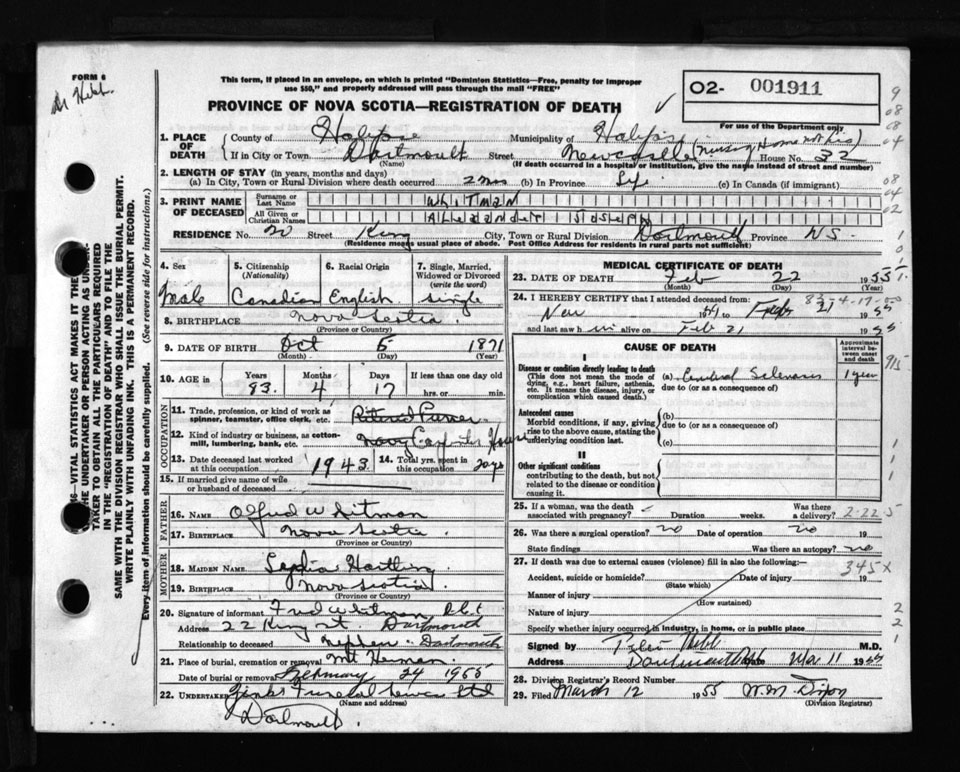 FORM 6
This form, if placed in an envelope, on which is printed "Dominion Statistics—Free, penalty for improper
use $50," and properly addressed will pass through the mail "FREE"
PROVINCE OF NOVA SCOTIA—REGISTRATION OF DEATH
O2- 001911
For use of the Department only
1. PLACE OF DEATH
County of Halifax Municipality of Halifax
If in City or Town Dartmouth Street Newcastle House No. 32
(Name) (If death occurred in a hospital or institution, give the name instead of street and number)
2. LENGTH OF STAY (in years, months and days)
(a) In City, Town or Rural Division where death occurred 2 mos (b) In Province Life (c) In Canada (if immigrant)
3. PRINT NAME OF DECEASED
Surname or Last Name WhiTMAN
All Given or Christian Names Alexander Joseph
RESIDENCE No. 20 Street King City, Town or Rural Division Dartmouth Province N.S.
(Residence means usual place of abode. Post Office Address for residents in rural parts not sufficient)
4. Sex Male
5. Citizenship (Nationality) Canadian
6. Racial Origin English
7. Single, Married, Widowed or Divorced (write the word) Single
8. BIRTHPLACE Nova Scotia
(Province or Country)
9. DATE OF BIRTH Oct 5 1871
(Month) (Day) (Year)
10. AGE in Years 83 Months 4 Days 17 If less than one day old hrs. or min.
OCCUPATION
11. Trade, profession, or kind of work as spinner, teamster, office clerk, etc. Retired
12. Kind of industry or business, as cotton-mill, lumbering, bank, etc. Navy
13. Date deceased last worked at this occupation 1943
14. Total yrs. spent in this occupation
15. If married give name of wife or husband of deceased
FATHER
16. NAME Alfred Whitman
17. BIRTHPLACE Nova Scotia
(Province or Country)
MOTHER
18. MAIDEN NAME Hartling
19. BIRTHPLACE Nova Scotia
(Province or Country)
20. Signature of informant Fred Whitman
Address 22 King St. Dartmouth
Relationship to deceased nephew. Dartmouth
21. Place of burial, cremation or removal Mt Herman.
Date of burial or removal February 24 1955
22. UNDERTAKER Funeral Service Ltd
(Name and address)
Dartmouth.
MEDICAL CERTIFICATE OF DEATH
23. DATE OF DEATH Feb 22 1955
(Month) (Day) (Year)
24. I HEREBY CERTIFY that I attended deceased from
Nov to Feb 21 1955
and last saw him alive on Feb 21 1955
CAUSE OF DEATH
Approximate interval between onset and death
I
Disease or condition directly leading to death
(This does not mean the mode of dying, e.g., heart failure, asthenia, etc. It means the disease, injury, or complication which caused death.)
(a) Cerebral Sclerosis 1 year
due to (or as a consequence of)
Antecedent causes
Morbid conditions, if any, giving rise to the above cause, stating the underlying condition last.
(b)
due to (or as a consequence of)
(c)
II
Other significant conditions
contributing to the death, but not related to the disease or condition causing it.
25. If a woman, was the death associated with pregnancy? Duration weeks. Was there a delivery?
26. Was there a surgical operation? no Date of operation no 19
State findings Was there an autopsy? no
27. If death was due to external causes (violence) fill in also the following:—
Accident, suicide or homicide? Date of injury 19
(State which)
Manner of injury
(How sustained)
Nature of injury
Specify whether injury occurred in industry, in home, or in public place
345 x
Signed by M.D.
Address Dartmouth Date Mar 11 1955
28. Division Registrar's Record Number
29. Filed March 12 1955 W.M. Dixon
(Division Registrar)
TAKER TO OBTAIN ALL THE PARTICULARS REQUIRED
IN THE "REGISTRATION OF DEATH" AND TO FILE THE
SAME WITH THE DIVISION REGISTRAR WHO SHALL ISSUE THE BURIAL PERMIT.
WRITE PLAINLY WITH UNFADING INK. THIS IS A PERMANENT RECORD.
Every item of information should be carefully supplied. (See reverse side for instructions.)